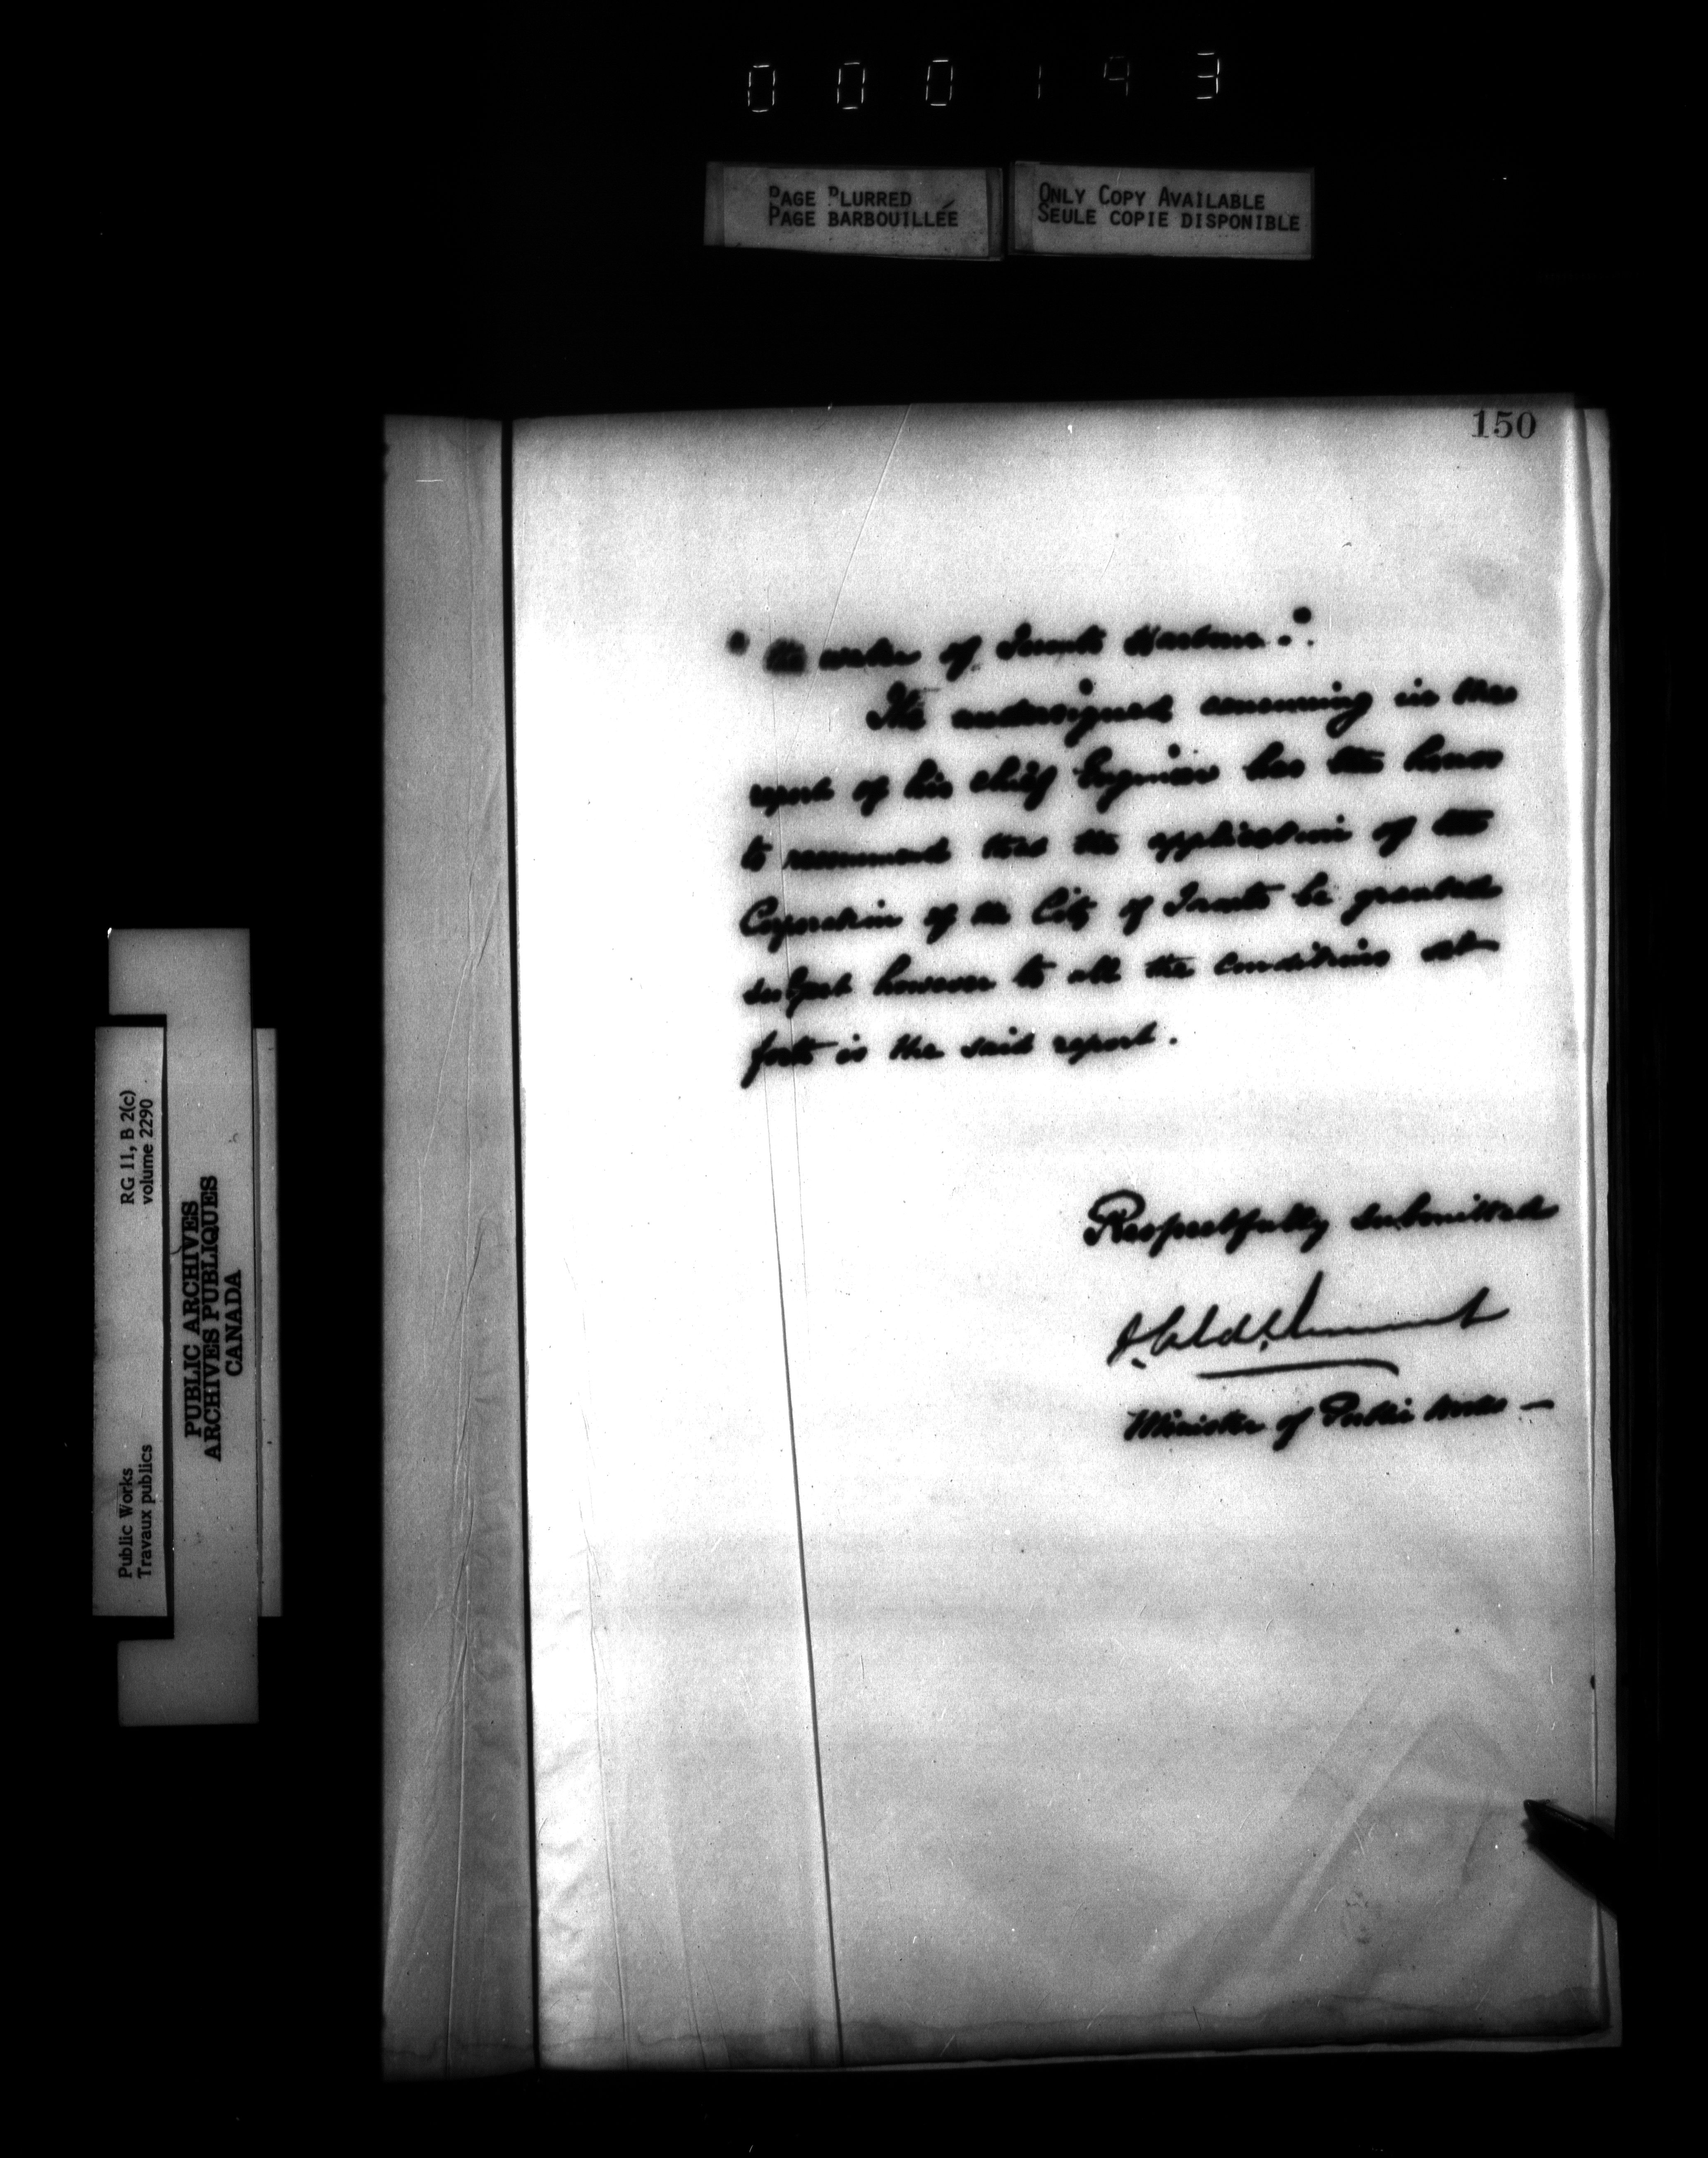 000193
PAGE BLURRED
PAGE BARBOUILLÉE
ONLY COPY AVAILABLE
SEULE COPIE DISPONIBLE
150
" the water of Toronto Harbour."
The undersigned concurring in the
report of his Chief Engineer has the honor
to recommend that the application of the
Corporation of the City of Toronto be granted
subject however to all the conditions set
forth in the said report.
Respectfully submitted
Minister of Public Works —
RG 11, B 2(c)
volume 2290
Public Works
Travaux publics
PUBLIC ARCHIVES
ARCHIVES PUBLIQUES
CANADA